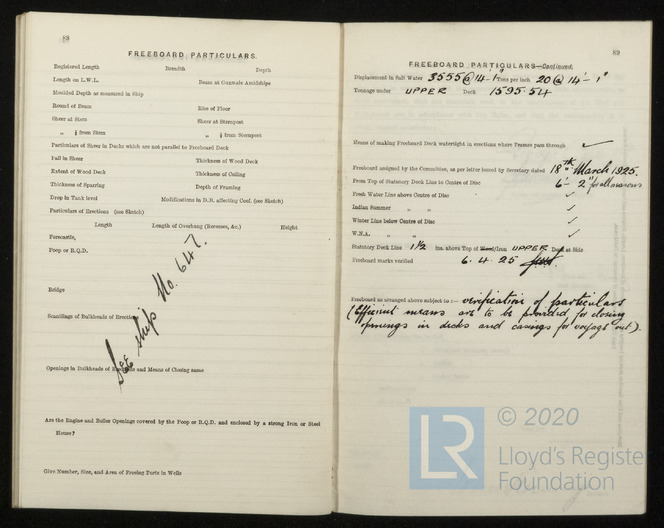 88
FREEBOARD PARTICULARS.
Registered Length Breadth Depth
Length on L.W.L. Beam at Gunwale Amidships
Moulded Depth as measured in Ship
Round of Beam Rise of Floor
Sheer at Stem Sheer at Sternpost
„ ⅛ from Stem „ ⅛ from Sternpost
Particulars of Sheer in Decks which are not parallel to Freeboard Deck
Fall in Sheer Thickness of Wood Deck
Extent of Wood Deck Thickness of Ceiling
Thickness of Sparring Depth of Framing
Drop in Tank level Modifications in D.B. affecting Coef. (see Sketch)
Particulars of Erections (see Sketch)
Length Length of Overhang (Recesses, &c.) Height
Forecastle,
Poop or R.Q.D.
Bridge
Scantlings of Bulkheads of Erections
Openings in Bulkheads of Erections and Means of Closing same
See ship No. 647.
Are the Engine and Boiler Openings covered by the Poop or R.Q.D. and enclosed by a strong Iron or Steel
House?
Give Number, Size, and Area of Freeing Ports in Wells
89
FREEBOARD PARTICULARS—Continued.
Displacement in Salt Water 3555 @ 14'-1" Tons per inch 20 @ 14'-1"
Tonnage under UPPER Deck 1595.54
Means of making Freeboard Deck watertight in erections where Frames pass through ✓
Freeboard assigned by the Committee, as per letter issued by Secretary dated 18th March 1925.
From Top of Statutory Deck Line to Centre of Disc 6'-2" for all seasons
Fresh Water Line above Centre of Disc ✓
Indian Summer „ „ ✓
Winter Line below Centre of Disc ✓
W.N.A. „ „ ✓
Statutory Deck Line 1½ ins. above Top of Wood/Iron UPPER Deck at Side
Freeboard marks verified 6.4.25
Freeboard as arranged above subject to :— verification of particulars
(Efficient means are to be provided for closing
openings in decks and casings for voyage out).
LR © 2020
Lloyd's Register
Foundation